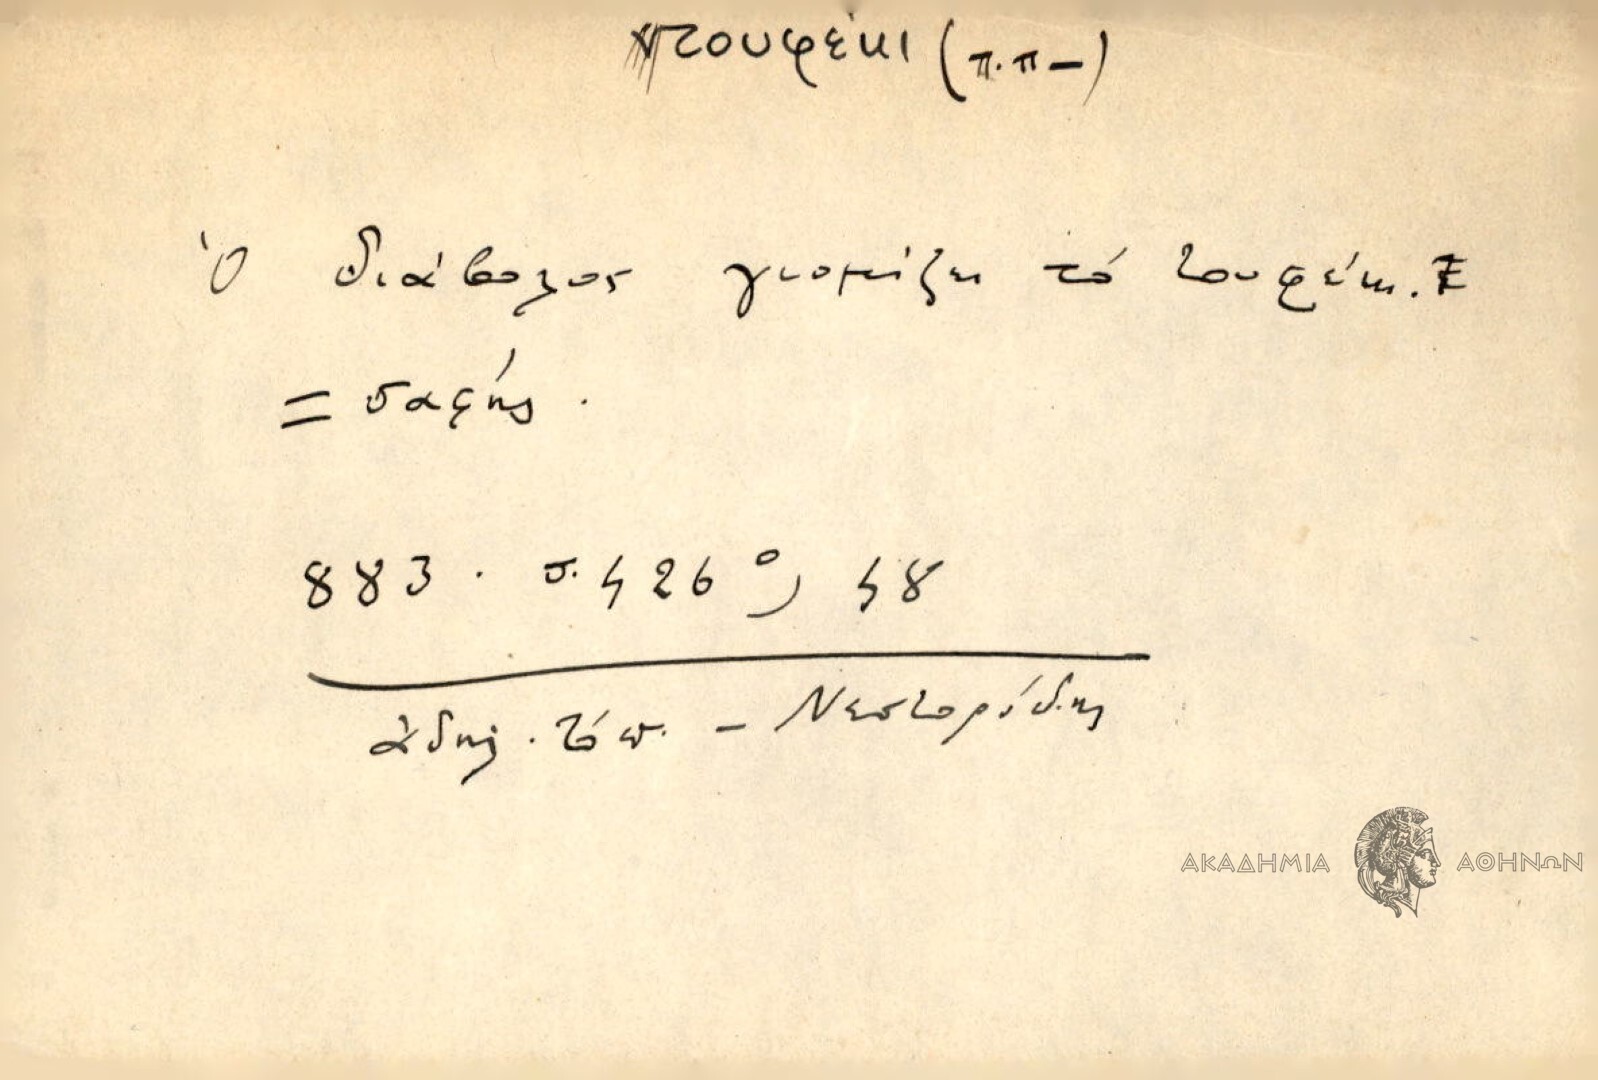 τουφέκι (π.π—)
Ὁ διάβολος γιομίζει τό τουφέκι.
= σαφής.
883 . σ. 426, 48
ἀδήλ. τόπ. – Νεστορίδης
ΑΚΑΔΗΜΙΑ ΑΘΗΝΩΝ